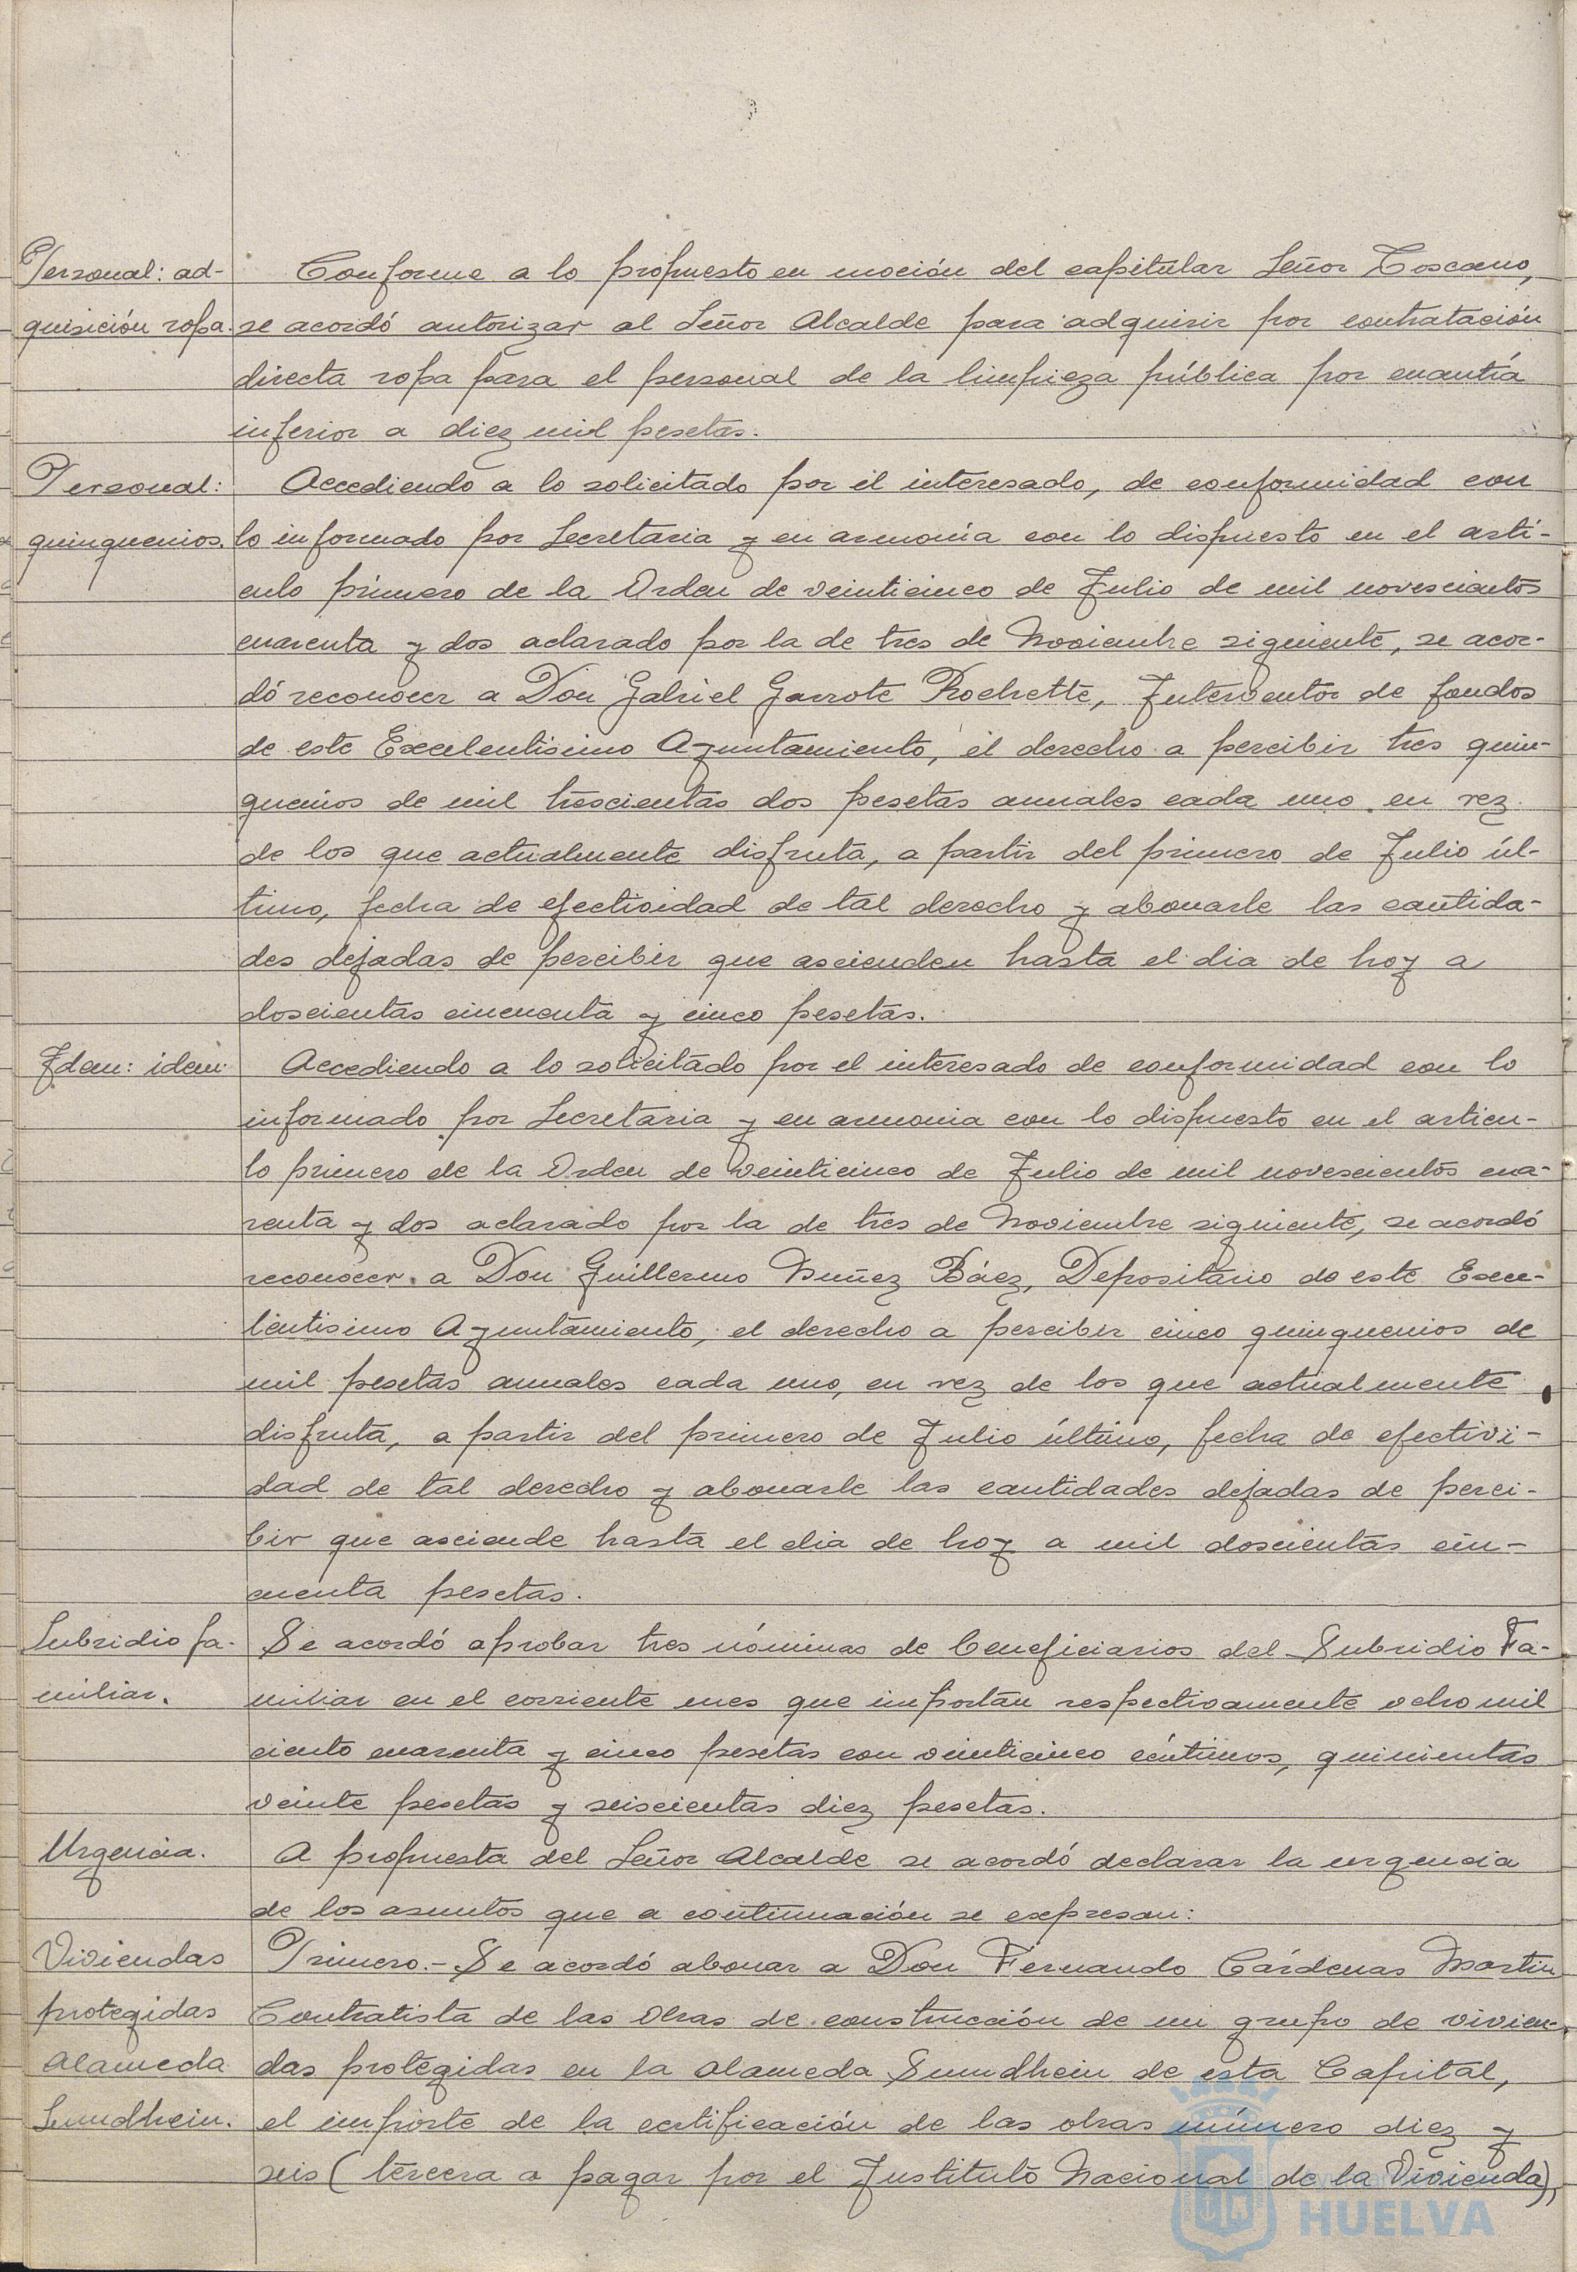 Personal: ad-
quisición ropa.
Conforme a lo propuesto en moción del capitular Señor Toscano,
se acordó autorizar al Señor Alcalde para adquirir por contratación
directa ropa para el personal de la limpieza pública por cuantía
inferior a diez mil pesetas.
Personal:
quinquenios.
Accediendo a lo solicitado por el interesado, de conformidad con
lo informado por Secretaria y en armonía con lo dispuesto en el artí-
culo primero de la Orden de veinticinco de Julio de mil novescientos
cuarenta y dos aclarado por la de tres de Noviembre siguiente, se acor-
dó reconocer a Don Gabriel Garrote Rochette, Interventor de fondos
de este Excelentisimo Ayuntamiento, el derecho a percibir tres quin-
quenios de mil trescientas dos pesetas anuales cada uno en vez
de los que actualmente disfruta, a partir del primero de Julio úl-
timo, fecha de efectividad de tal derecho y abonarle las cantida-
des dejadas de percibir que ascienden hasta el dia de hoy a
doscientas cincuenta y cinco pesetas.
Idem: idem.
Accediendo a lo solicitado por el interesado de conformidad con lo
informado por Secretaria y en armonia con lo dispuesto en el articu-
lo primero de la Orden de veinticinco de Julio de mil novescientos cua-
renta y dos aclarado por la de tres de Noviembre siguiente, se acordó
reconocer a Don Guillermo Nuñez Báez, Depositario de este Exce-
lentisimo Ayuntamiento, el derecho a percibir cinco quinquenios de
mil pesetas anuales cada uno, en vez de los que actualmente
disfruta, a partir del primero de Julio último, fecha de efectivi-
dad de tal derecho y abonarle las cantidades dejadas de perci-
bir que asciende hasta el dia de hoy a mil doscientas cin-
cuenta pesetas.
Subsidio fa-
miliar.
Se acordó aprobar tres nóminas de beneficiarios del Subsidio Fa-
miliar en el corriente mes que importan respectivamente ocho mil
ciento cuarenta y cinco pesetas con veinticinco céntimos, quinientas
veinte pesetas y seiscientas diez pesetas.
Urgencia.
A propuesta del Señor Alcalde se acordó declarar la urgencia
de los asuntos que a continuación se expresan:
Viviendas
protegidas
Alameda
Sundhein.
Primero.- Se acordó abonar a Don Fernando Cárdenas Martin
Contratista de las obras de construcción de un grupo de vivien-
das protegidas en la Alameda Sundhein de esta Capital,
el importe de la certificación de las obras número diez y
seis (tercera a pagar por el Instituto Nacional de la Vivienda),
HUELVA